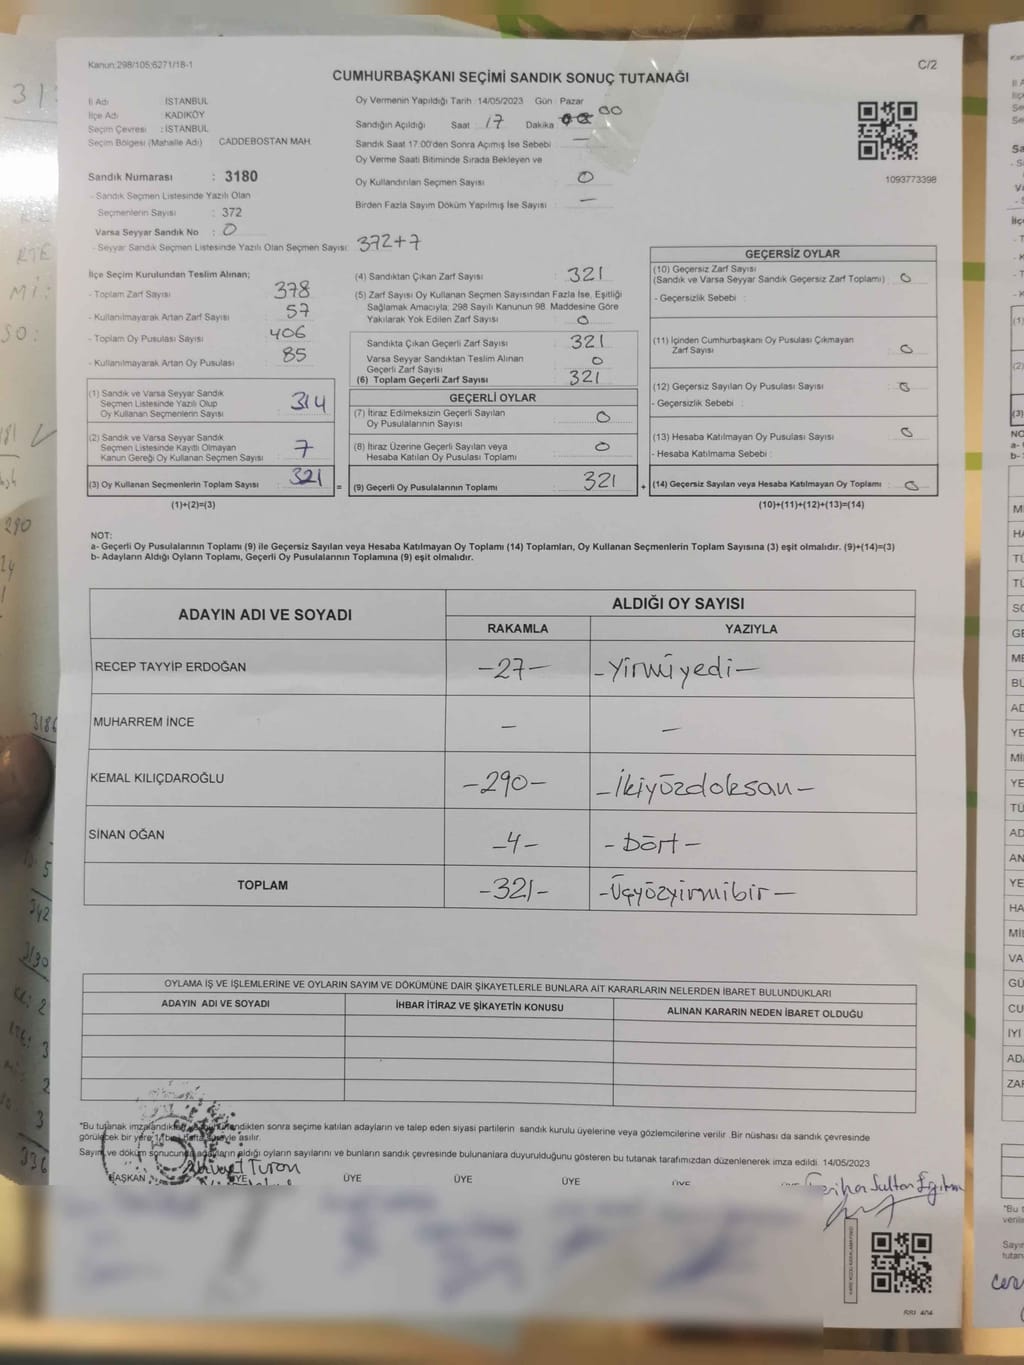 Kanun:298/105;6271/18-1
C/2
CUMHURBAŞKANI SEÇİMİ SANDIK SONUÇ TUTANAĞI
İl Adı : İSTANBUL
İlçe Adı : KADIKÖY
Seçim Çevresi : İSTANBUL
Seçim Bölgesi (Mahalle Adı) CADDEBOSTAN MAH.
Sandık Numarası : 3180
- Sandık Seçmen Listesinde Yazılı Olan
Seçmenlerin Sayısı : 372
Varsa Seyyar Sandık No : 0
- Seyyar Sandık Seçmen Listesinde Yazılı Olan Seçmen Sayısı: 372+7
Oy Vermenin Yapıldığı Tarih :14/05/2023 Gün : Pazar
Sandığın Açıldığı Saat : 17 Dakika : 00
Sandık Saat 17:00'den Sonra Açımış İse Sebebi : —
Oy Verme Saati Bitiminde Sırada Bekleyen ve
Oy Kullandırılan Seçmen Sayısı : 0
Birden Fazla Sayım Döküm Yapılmış İse Sayısı : —
1093773398
İlçe Seçim Kurulundan Teslim Alınan;
- Toplam Zarf Sayısı : 378
- Kullanılmayarak Artan Zarf Sayısı : 57
- Toplam Oy Pusulası Sayısı : 406
- Kullanılmayarak Artan Oy Pusulası : 85
(1) Sandık ve Varsa Seyyar Sandık
Seçmen Listesinde Yazılı Olup
Oy Kullanan Seçmenlerin Sayısı : 314
(2) Sandık ve Varsa Seyyar Sandık
Seçmen Listesinde Kayıtlı Olmayan
Kanun Gereği Oy Kullanan Seçmen Sayısı : 7
(3) Oy Kullanan Seçmenlerin Toplam Sayısı : 321
(1)+(2)=(3)
(4) Sandıktan Çıkan Zarf Sayısı : 321
(5) Zarf Sayısı Oy Kullanan Seçmen Sayısından Fazla İse, Eşitliği
Sağlamak Amacıyla; 298 Sayılı Kanunun 98. Maddesine Göre
Yakılarak Yok Edilen Zarf Sayısı : 0
Sandıkta Çıkan Geçerli Zarf Sayısı : 321
Varsa Seyyar Sandıktan Teslim Alınan
Geçerli Zarf Sayısı : 0
(6) Toplam Geçerli Zarf Sayısı : 321
GEÇERLİ OYLAR
(7) İtiraz Edilmeksizin Geçerli Sayılan
Oy Pusulalarının Sayısı : 0
(8) İtiraz Üzerine Geçerli Sayılan veya
Hesaba Katılan Oy Pusulası Toplamı : 0
= (9) Geçerli Oy Pusulalarının Toplamı : 321
GEÇERSİZ OYLAR
(10) Geçersiz Zarf Sayısı
(Sandık ve Varsa Seyyar Sandık Geçersiz Zarf Toplamı) : 0
- Geçersizlik Sebebi :
(11) İçinden Cumhurbaşkanı Oy Pusulası Çıkmayan
Zarf Sayısı : 0
(12) Geçersiz Sayılan Oy Pusulası Sayısı : 0
- Geçersizlik Sebebi :
(13) Hesaba Katılmayan Oy Pusulası Sayısı : 0
- Hesaba Katılmama Sebebi :
+ (14) Geçersiz Sayılan veya Hesaba Katılmayan Oy Toplamı : 0
(10)+(11)+(12)+(13)=(14)
NOT:
a- Geçerli Oy Pusulalarının Toplamı (9) ile Geçersiz Sayılan veya Hesaba Katılmayan Oy Toplamı (14) Toplamları, Oy Kullanan Seçmenlerin Toplam Sayısına (3) eşit olmalıdır. (9)+(14)=(3)
b- Adayların Aldığı Oyların Toplamı, Geçerli Oy Pusulalarının Toplamına (9) eşit olmalıdır.
ADAYIN ADI VE SOYADI
ALDIĞI OY SAYISI
RAKAMLA YAZIYLA
RECEP TAYYİP ERDOĞAN -27- -Yirmiyedi-
MUHARREM İNCE — —
KEMAL KILIÇDAROĞLU -290- -İkiyüzdoksan-
SİNAN OĞAN -4- -Dört-
TOPLAM -321- -Üçyüzyirmibir-
OYLAMA İŞ VE İŞLEMLERİNE VE OYLARIN SAYIM VE DÖKÜMÜNE DAİR ŞİKAYETLERLE BUNLARA AİT KARARLARIN NELERDEN İBARET BULUNDUKLARI
ADAYIN ADI VE SOYADI İHBAR İTİRAZ VE ŞİKAYETİN KONUSU ALINAN KARARIN NEDEN İBARET OLDUĞU
"Bu tutanak imzalandıktan sonra seçime katılan adayların ve talep eden siyasi partilerin sandık kurulu üyelerine veya gözlemcilerine verilir .Bir nüshası da sandık çevresinde
görülecek bir yere asılır.
Sayım ve döküm sonucunda adayların aldığı oyların sayılarını ve bunların sandık çevresinde bulunanlara duyurulduğunu gösteren bu tutanak tarafımızdan düzenlenerek imza edildi. 14/05/2023
BAŞKAN ÜYE ÜYE ÜYE ÜYE ÜYE